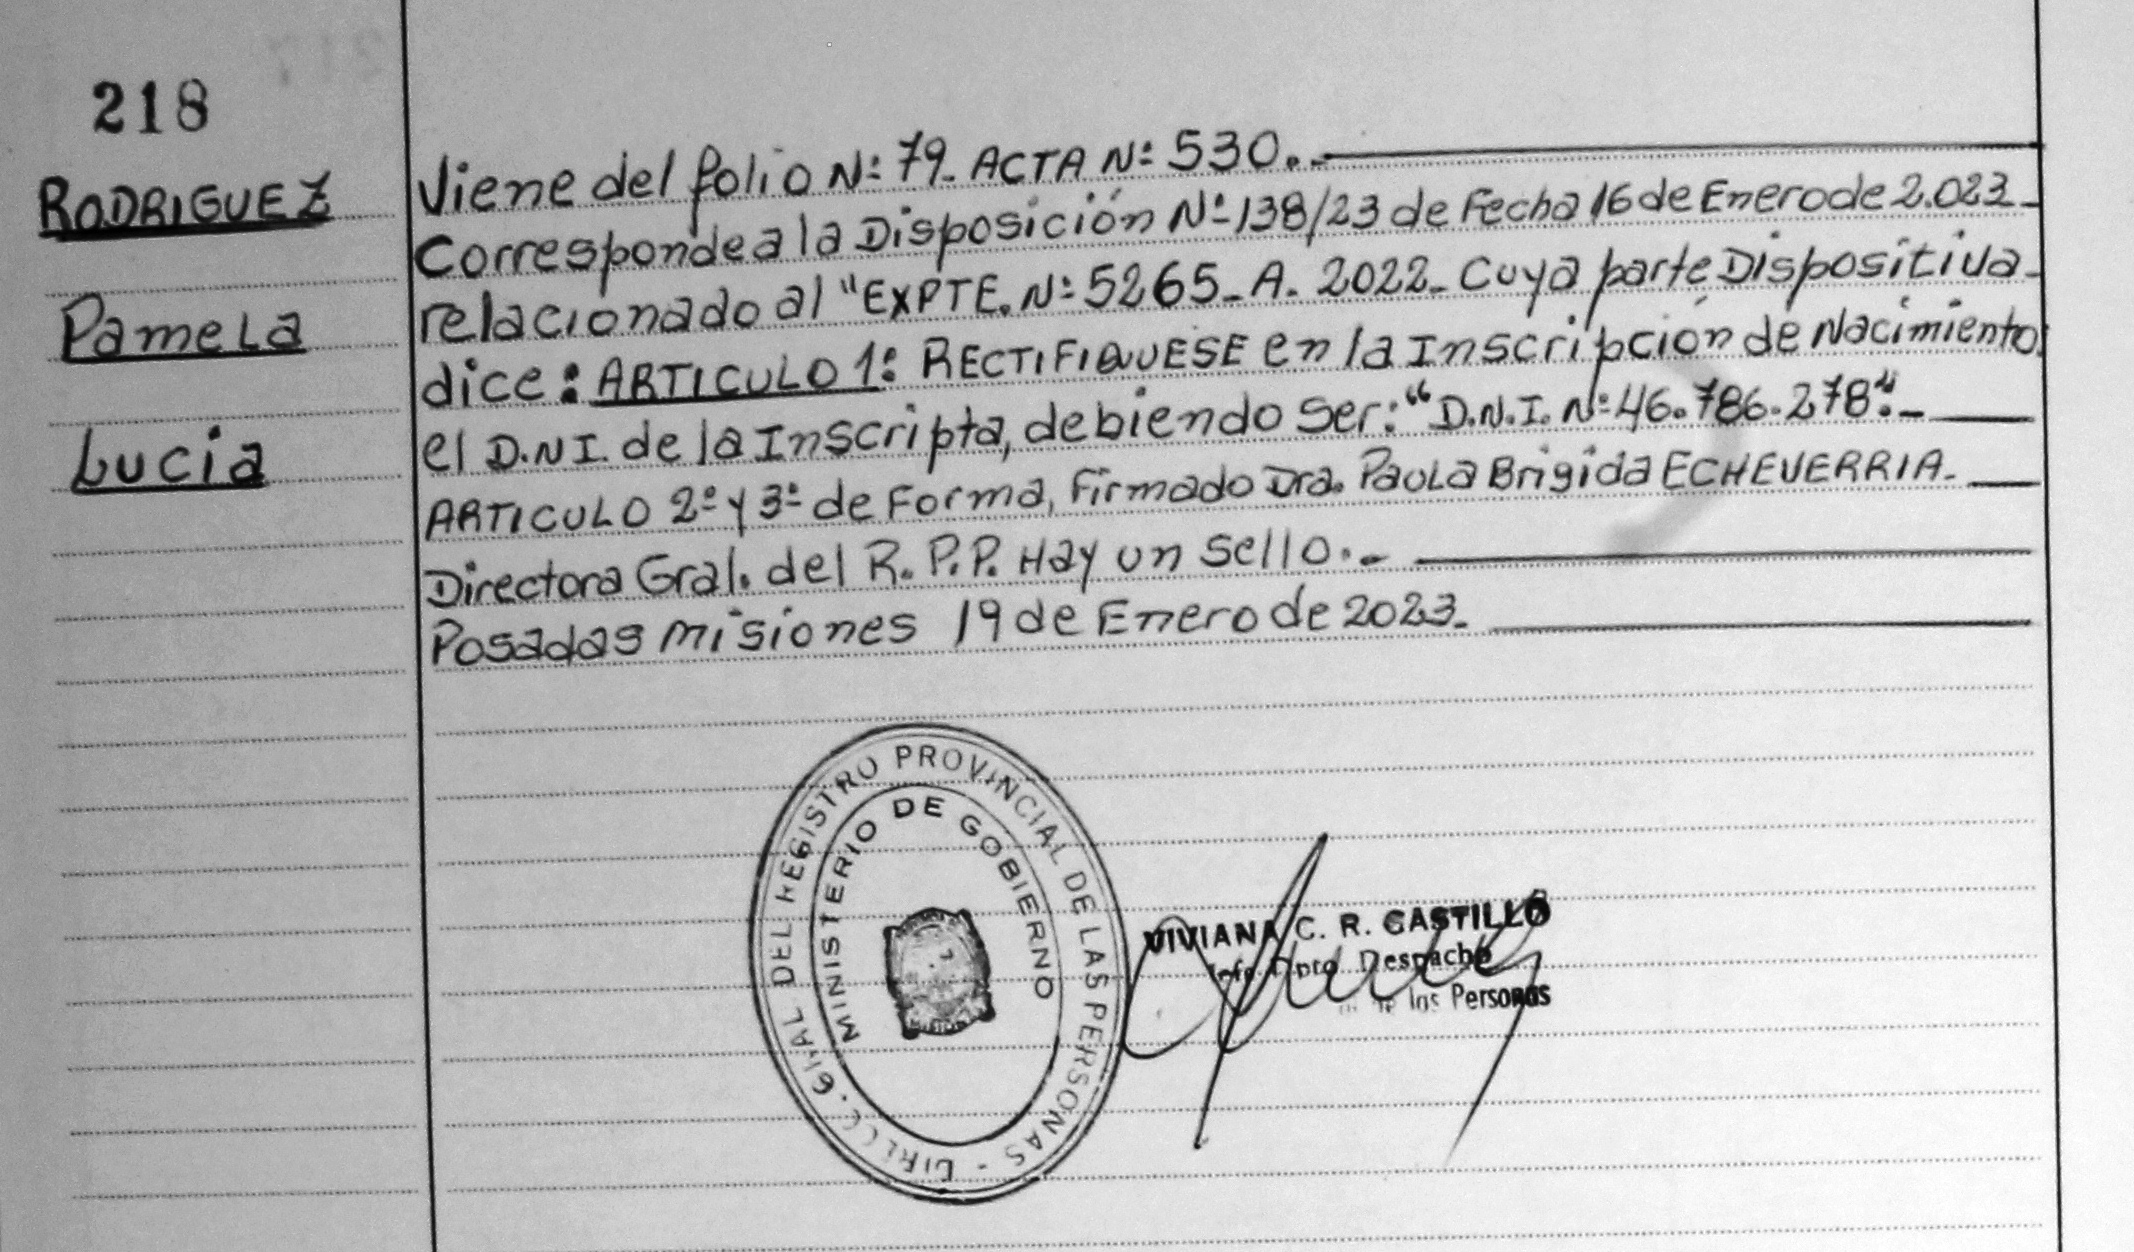 218
RODRIGUEZ
Pamela
Lucia
Viene del folio Nº 79. ACTA Nº 530.-
Corresponde a la Disposición Nº 138/23 de Fecha 16 de Enero de 2.023-
relacionado al "EXPTE. Nº 5265- A- 2022- Cuya parte Dispositiva-
dice: ARTICULO 1: RECTIFIQUESE en la Inscripción de Nacimiento
el D.N.I. de la Inscripta, debiendo ser: "D.N.I. Nº 46.786.278".-
ARTICULO 2º y 3º de Forma, Firmado Dra. Paola Brigida ECHEVERRIA-
Directora Gral. del R.P.P. Hay un sello.-
Posadas Misiones 19 de Enero de 2023.
DIRECC. GRAL DEL REGISTRO PROVINCIAL DE LAS PERSONAS -
MINISTERIO DE GOBIERNO
VIVIANA C. R. CASTILLO
Dpto. Despacho
de las Personas